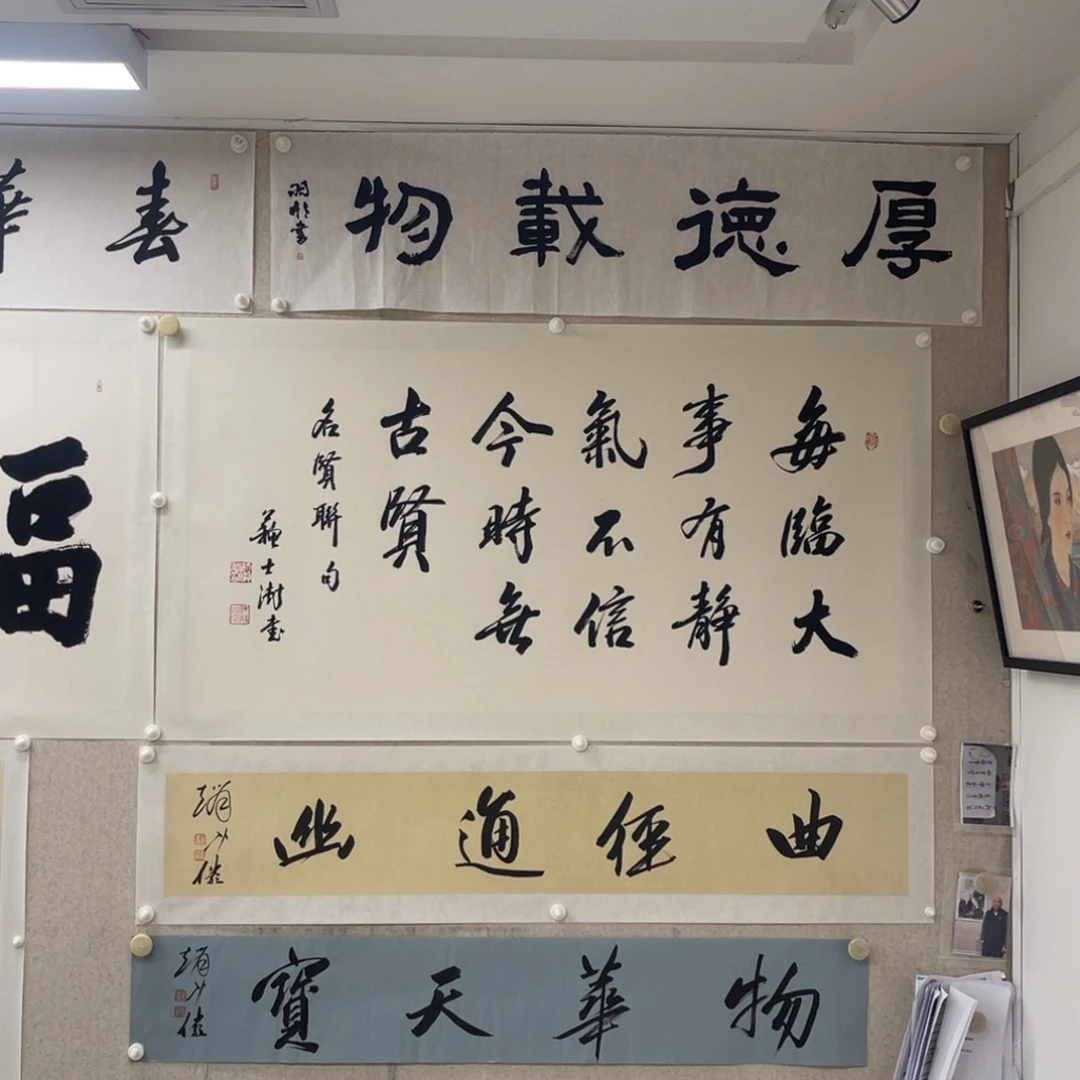 厚德載物
春華
每臨大
事有靜
氣不信
今時無
古賢
名賢聯句
蘇士澍書
福
曲徑通幽
物華天寶